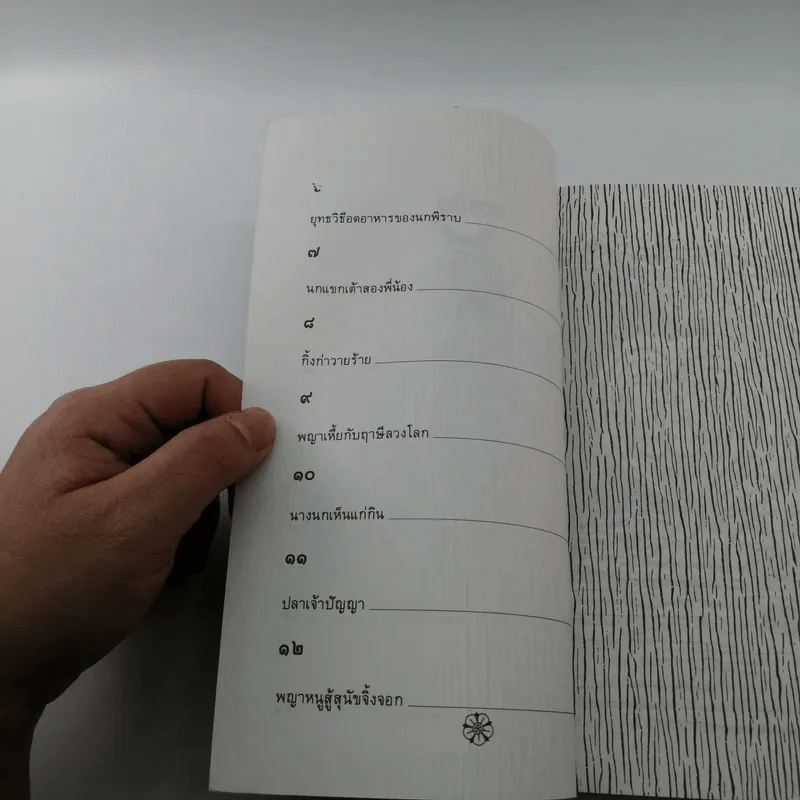 ๖
ยุทธวิธีอดอาหารของนกพิราบ
๗
นกแขกเต้าสองพี่น้อง
๘
กิ้งก่าวายร้าย
๙
พญาเหี้ยกับฤาษีลวงโลก
๑๐
นางนกเห็นแก่กิน
๑๑
ปลาเจ้าปัญญา
๑๒
พญาหนูสู้สุนัขจิ้งจอก